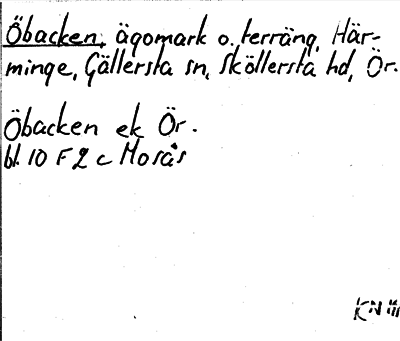 Öbacken, ägomark o. terräng, Här-
minge, Gällersta sn, Sköllersta hd, Ör.
Öbacken ek Ör.
bl. 10 F 2 c Mosås